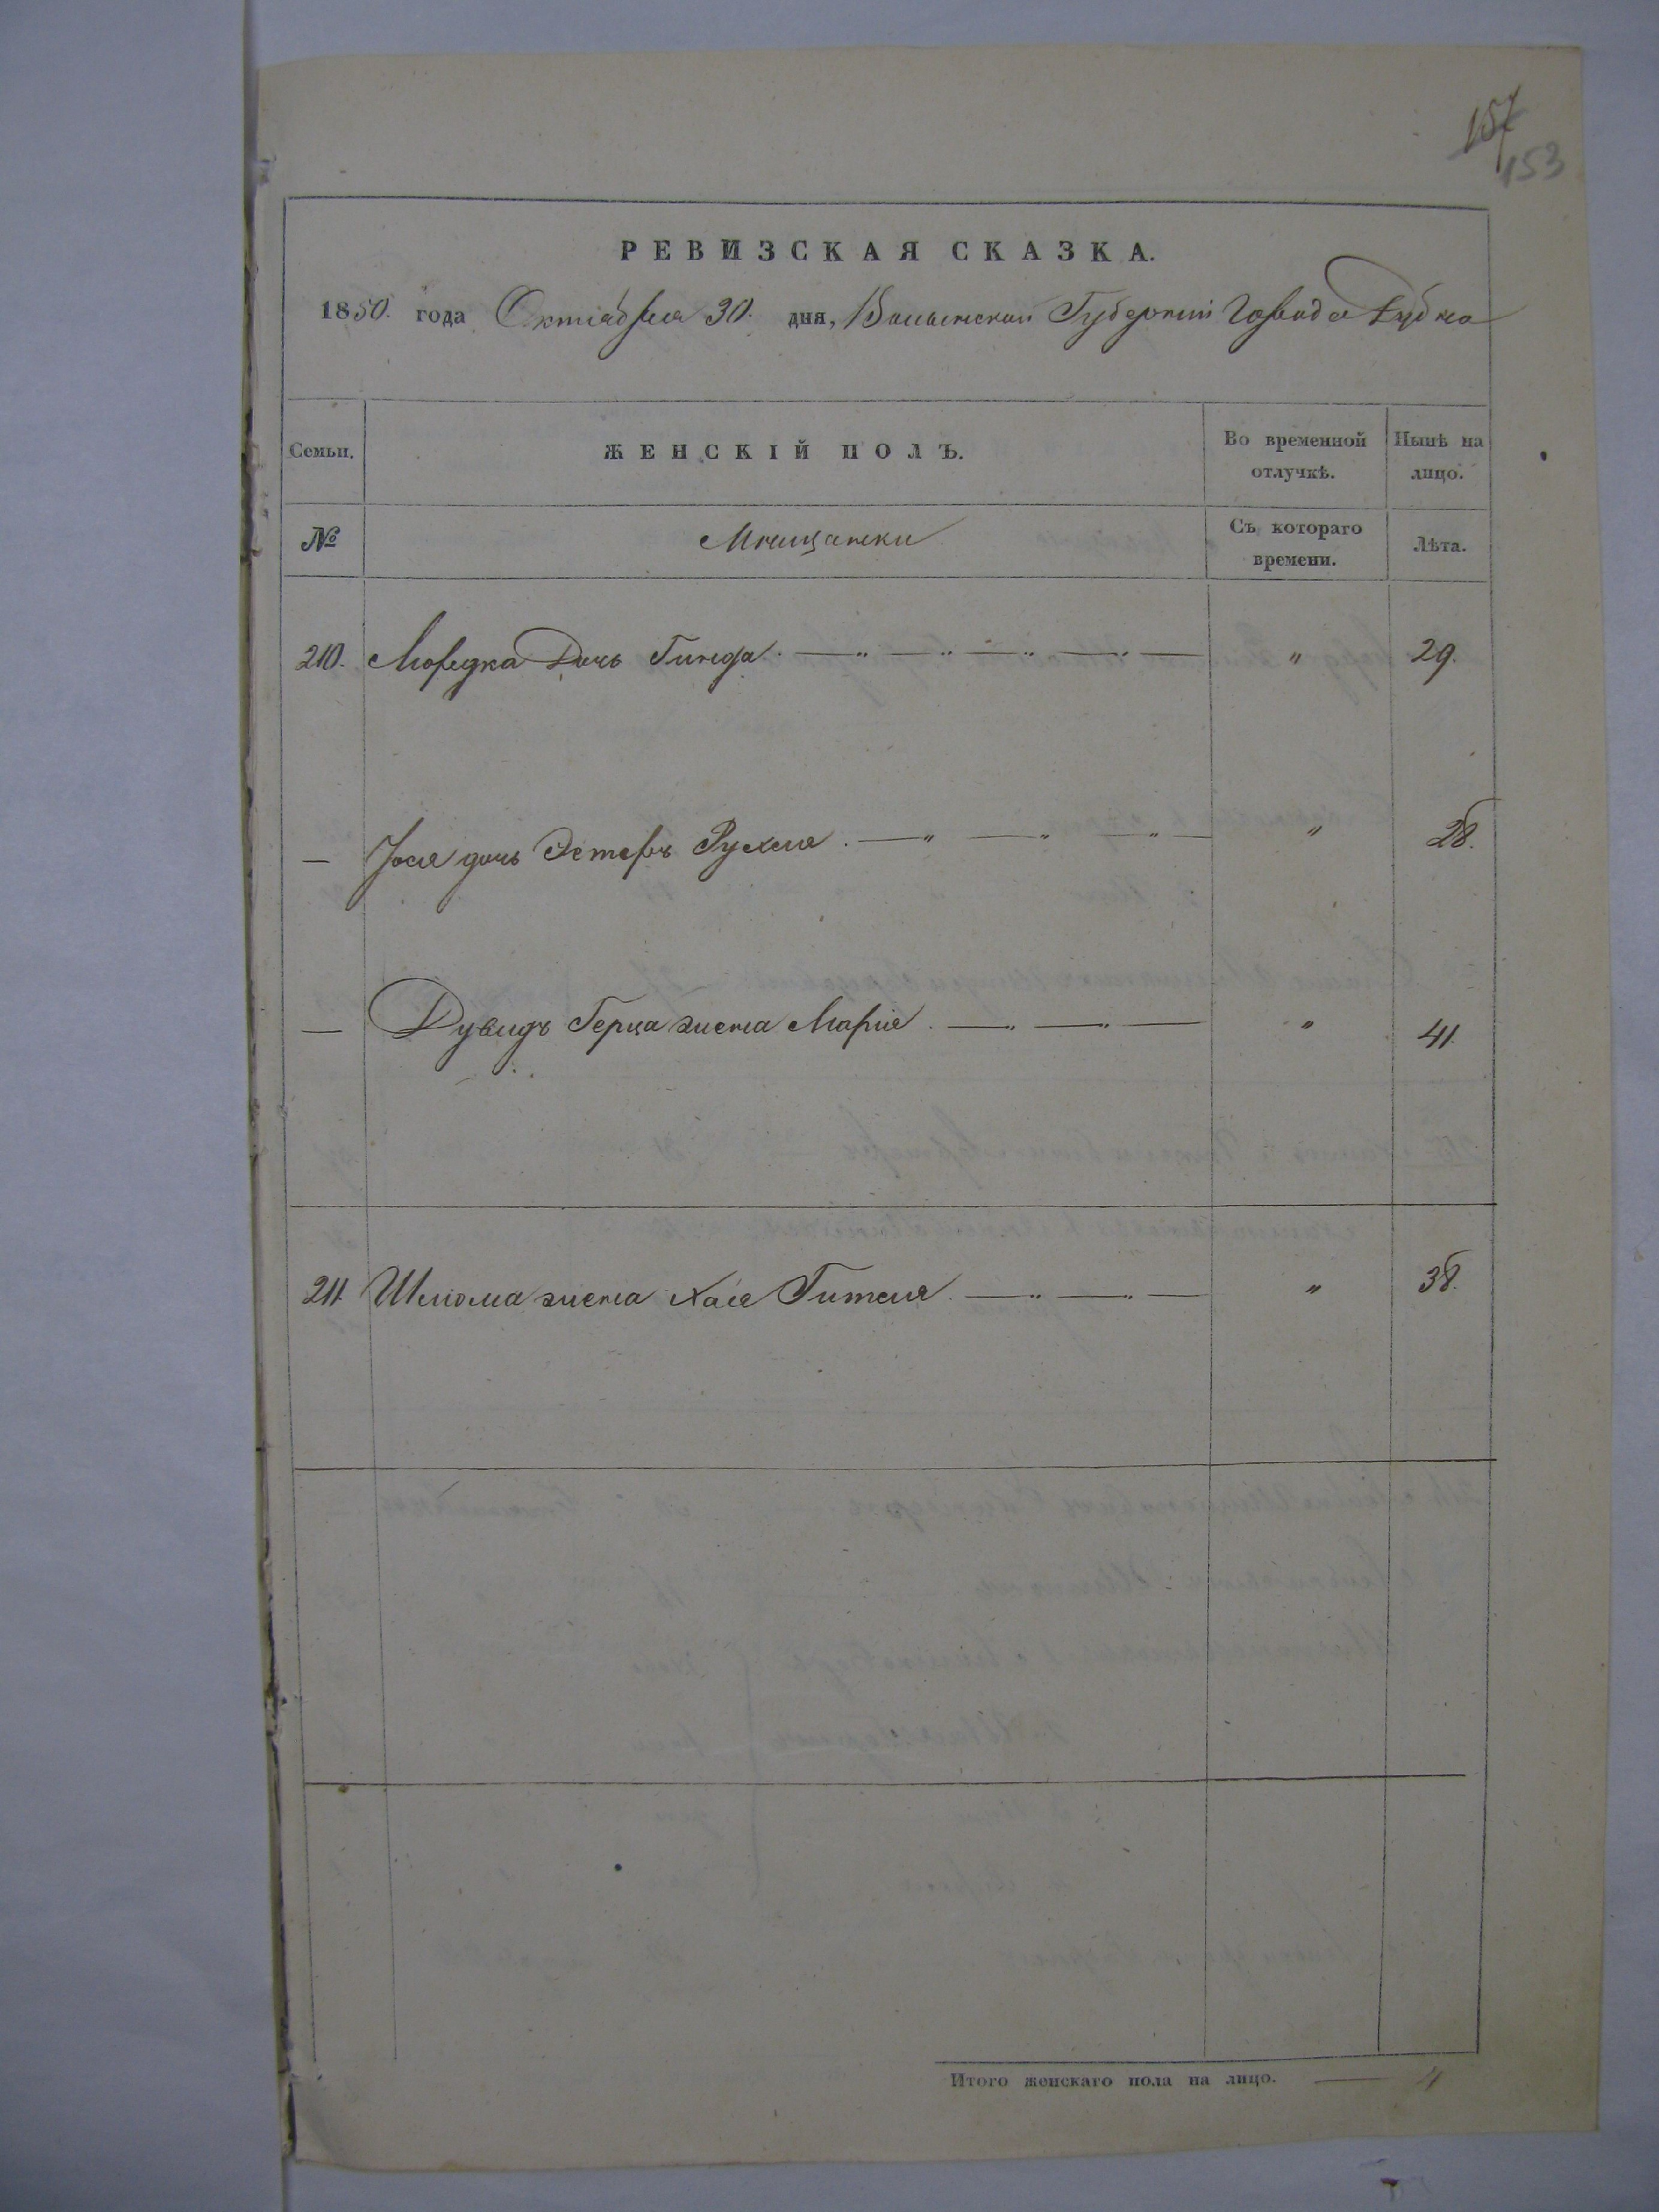 157
153
РЕВИЗСКАЯ СКАЗКА.
1850. года Октября 30. дня, Волынской Губернии Города Дубно
Семьи. ЖЕНСКІЙ ПОЛЪ. Во временной отлучкѣ. Нынѣ на лицо.
№ Мещанки Съ котораго времени. Лѣта.
210. Мордка Дочь Гинда. " 29.
— Іося дочь Эстеръ Рухля. " 28.
— Дувидъ Герца жена Марія. " 41.
211. Шлиома жена Хая Гителя " 38.
Итого женскаго пола на лицо. — 4